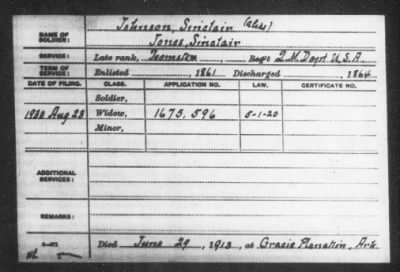 NAME OF SOLDIER: Johnson, Sinclair (alias)
Jones, Sinclair
SERVICE: Late rank, Teamster, Reg't Q.M. Dept. U.S.A.
TERM OF SERVICE: Enlisted , 1861 Discharged , 1864
DATE OF FILING. CLASS. APPLICATION NO. LAW. CERTIFICATE NO.
Soldier,
1920 Aug 23 Widow, 1675,596 5-1-20
Minor,
ADDITIONAL SERVICES:
REMARKS:
Died June 29, 1913, at Gracie Planation, Ark